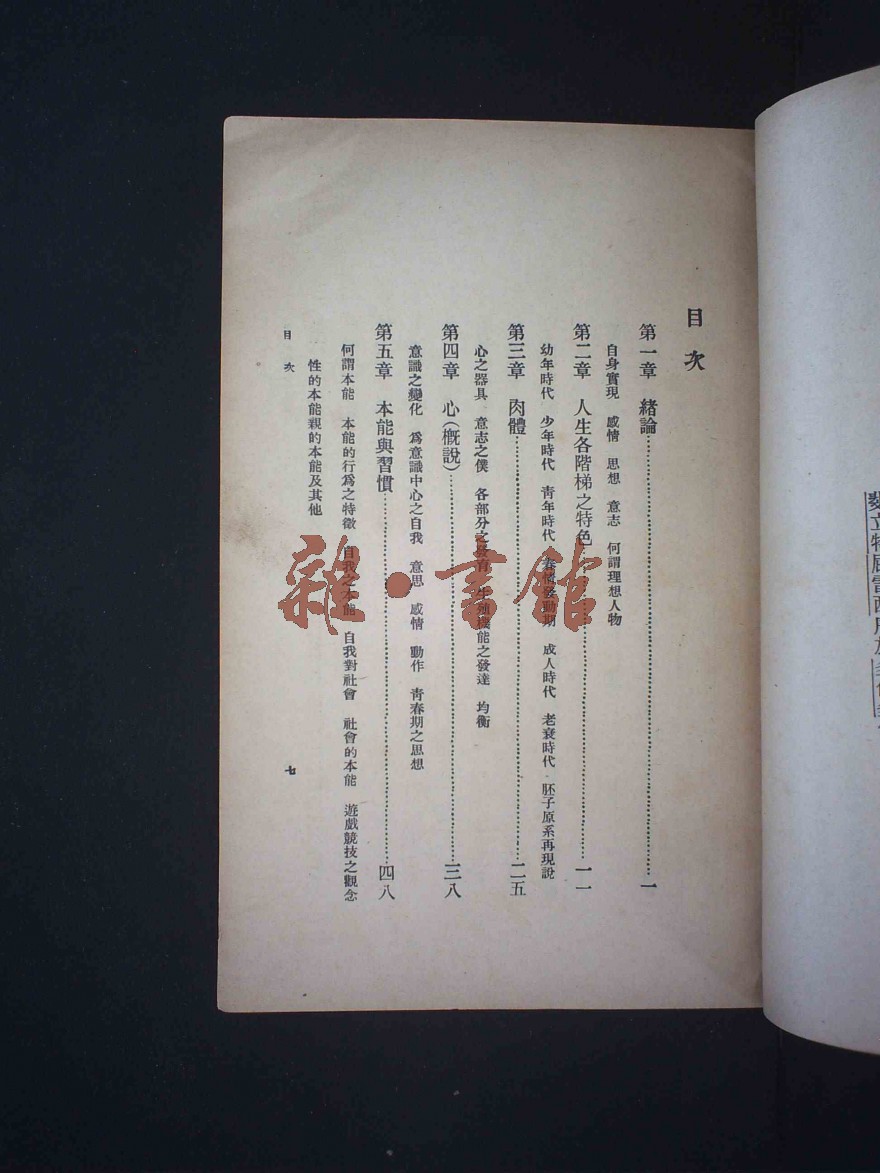 目次
第一章　緒論……一
自身實現　感情　思想　意志　何謂理想人物
第二章　人生各階梯之特色……一一
幼年時代　少年時代　青年時代　春情發動期　成人時代　老衰時代　胚子原系再現說
第三章　肉體……二五
心之器具　意志之僕　各部分之發育　生殖機能之發達　均衡
第四章　心(槪說)……三八
意識之變化　爲意識中心之自我　意思　感情　動作　靑春期之思想
第五章　本能與習慣……四八
何謂本能　本能的行爲之特徵　自我之本能　自我對社會　社會的本能　遊戲競技之觀念
性的本能親的本能及其他
目次
七
雜·書館